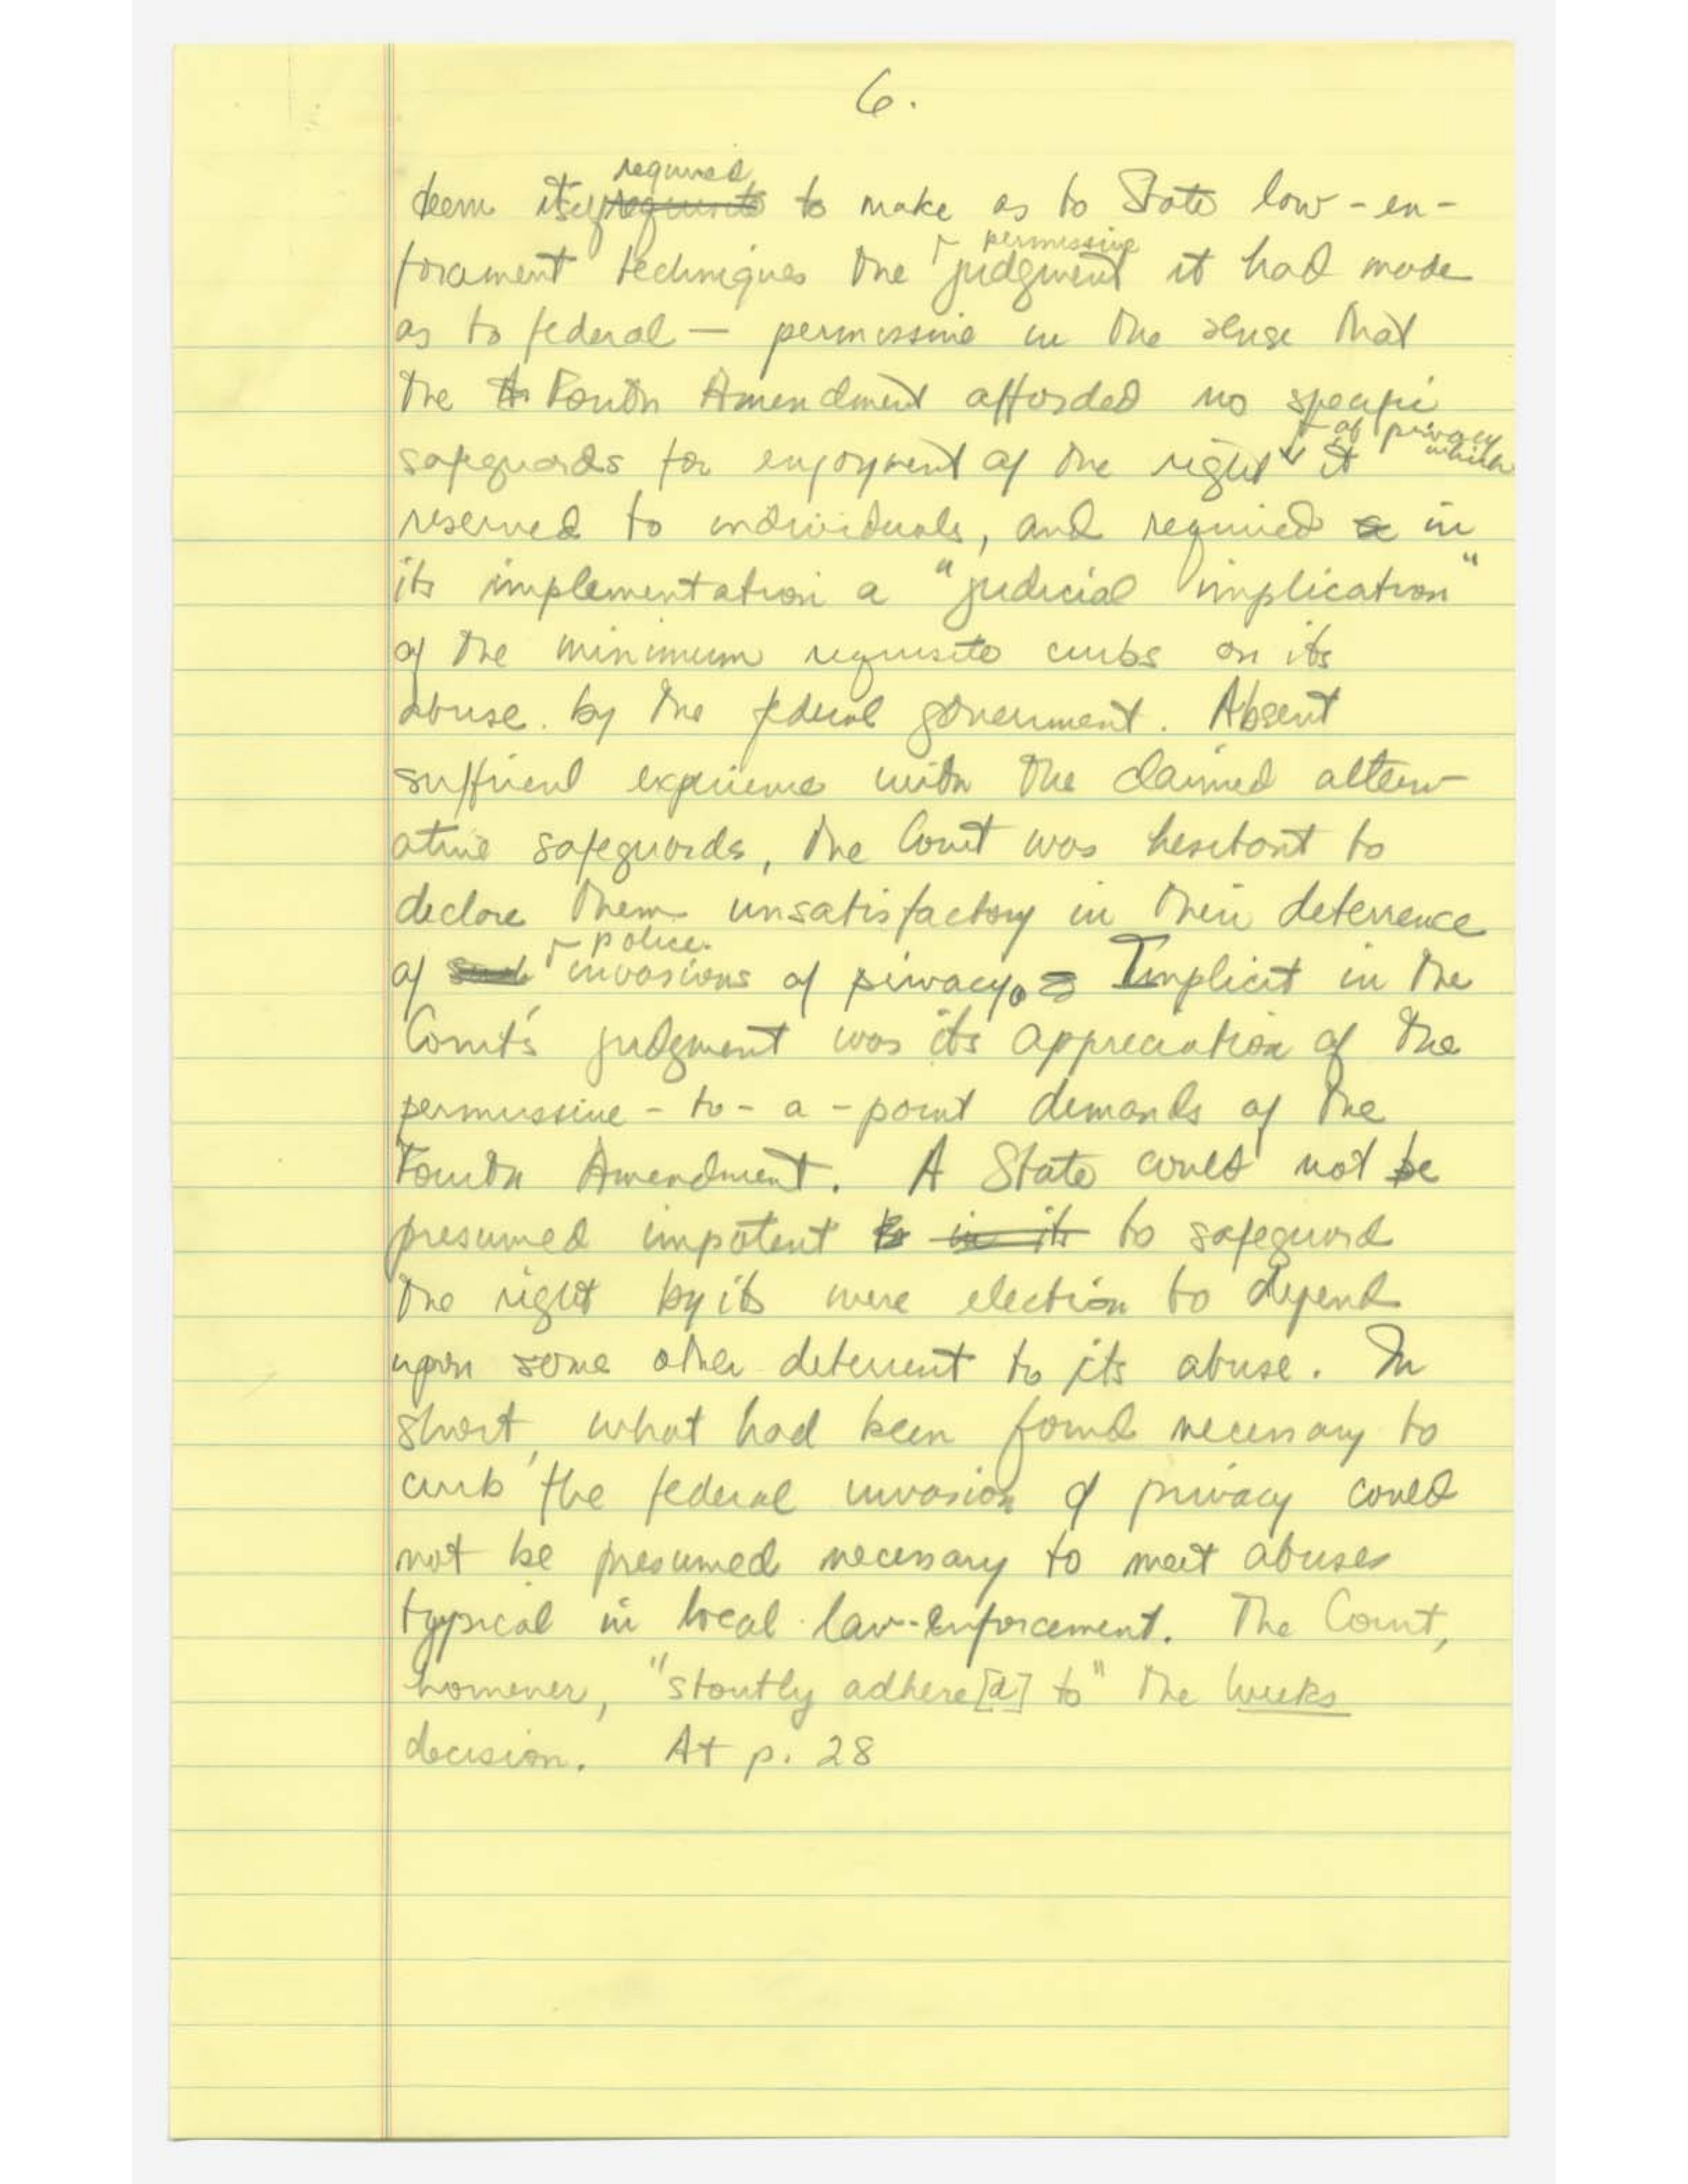 6.
required
deem itself requisite to make as to State law-en-
permissive
forcement techniques the judgment it had made
as to federal — permissive in the sense that
the Fourth Amendment afforded no specific
of privacy which
safeguards for enjoyment of the right it
reserved to individuals, and required in
its implementation a "judicial implication"
of the minimum requisite curbs on its
abuse by the federal government. Absent
sufficient experience with the claimed altern-
ative safeguards, the Court was hesitant to
declare them unsatisfactory in their deterrence
police
of such invasions of privacy. Implicit in the
Court's judgment was its appreciation of the
permissive-to-a-point demands of the
Fourth Amendment. A State could not be
presumed impotent to in its to safeguard
the right by its mere election to depend
upon some other deterrent to its abuse. In
short, what had been found necessary to
curb the federal invasion of privacy could
not be presumed necessary to meet abuses
typical in local law-enforcement. The Court,
however, "stoutly adhere[d] to" the Weeks
decision. At p. 28